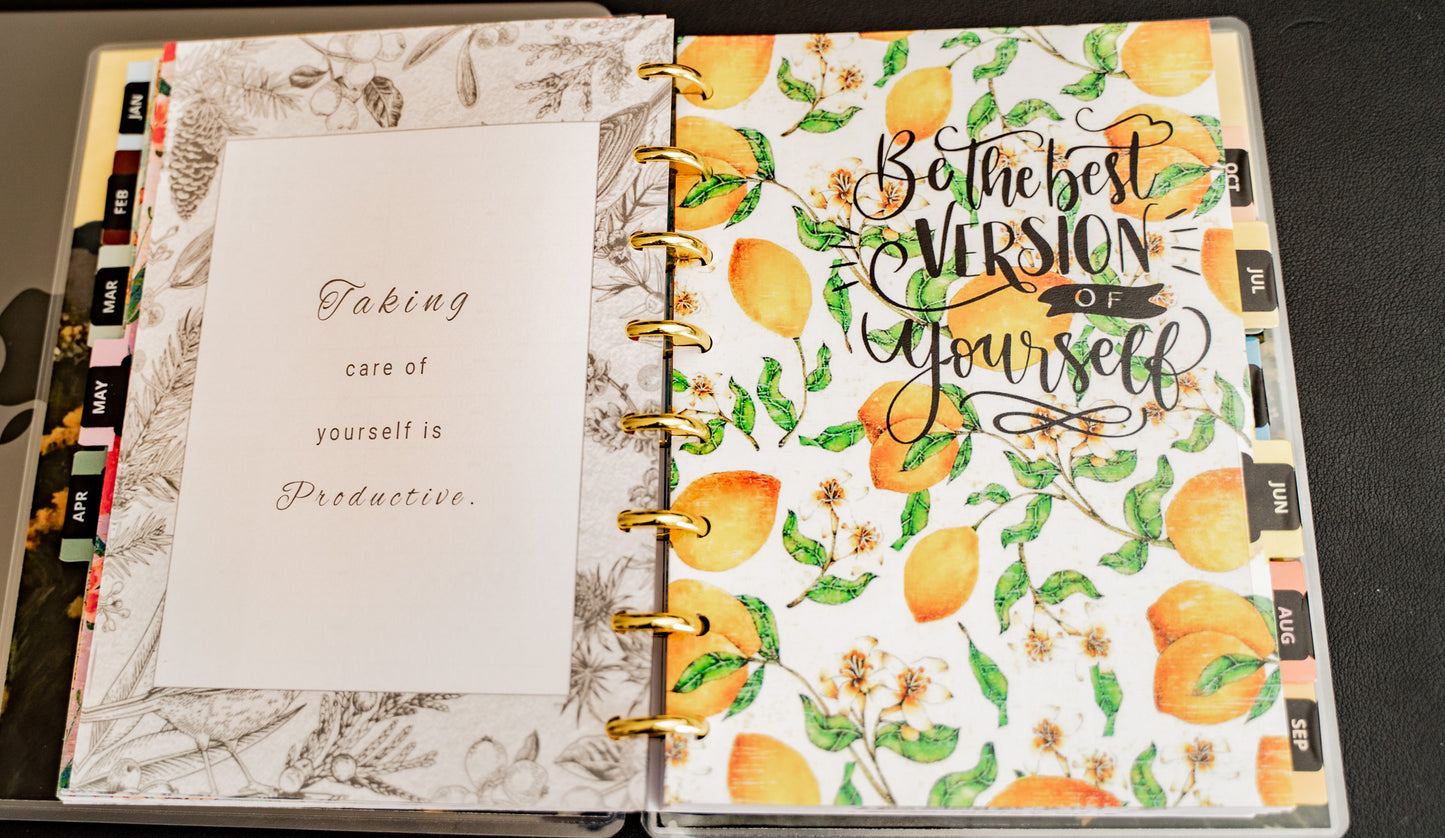 JAN
FEB
MAR
MAY
APR
Taking
care of
yourself is
Productive.
Be the best
VERSION
OF
Yourself
OCT
JUL
JUN
AUG
SEP